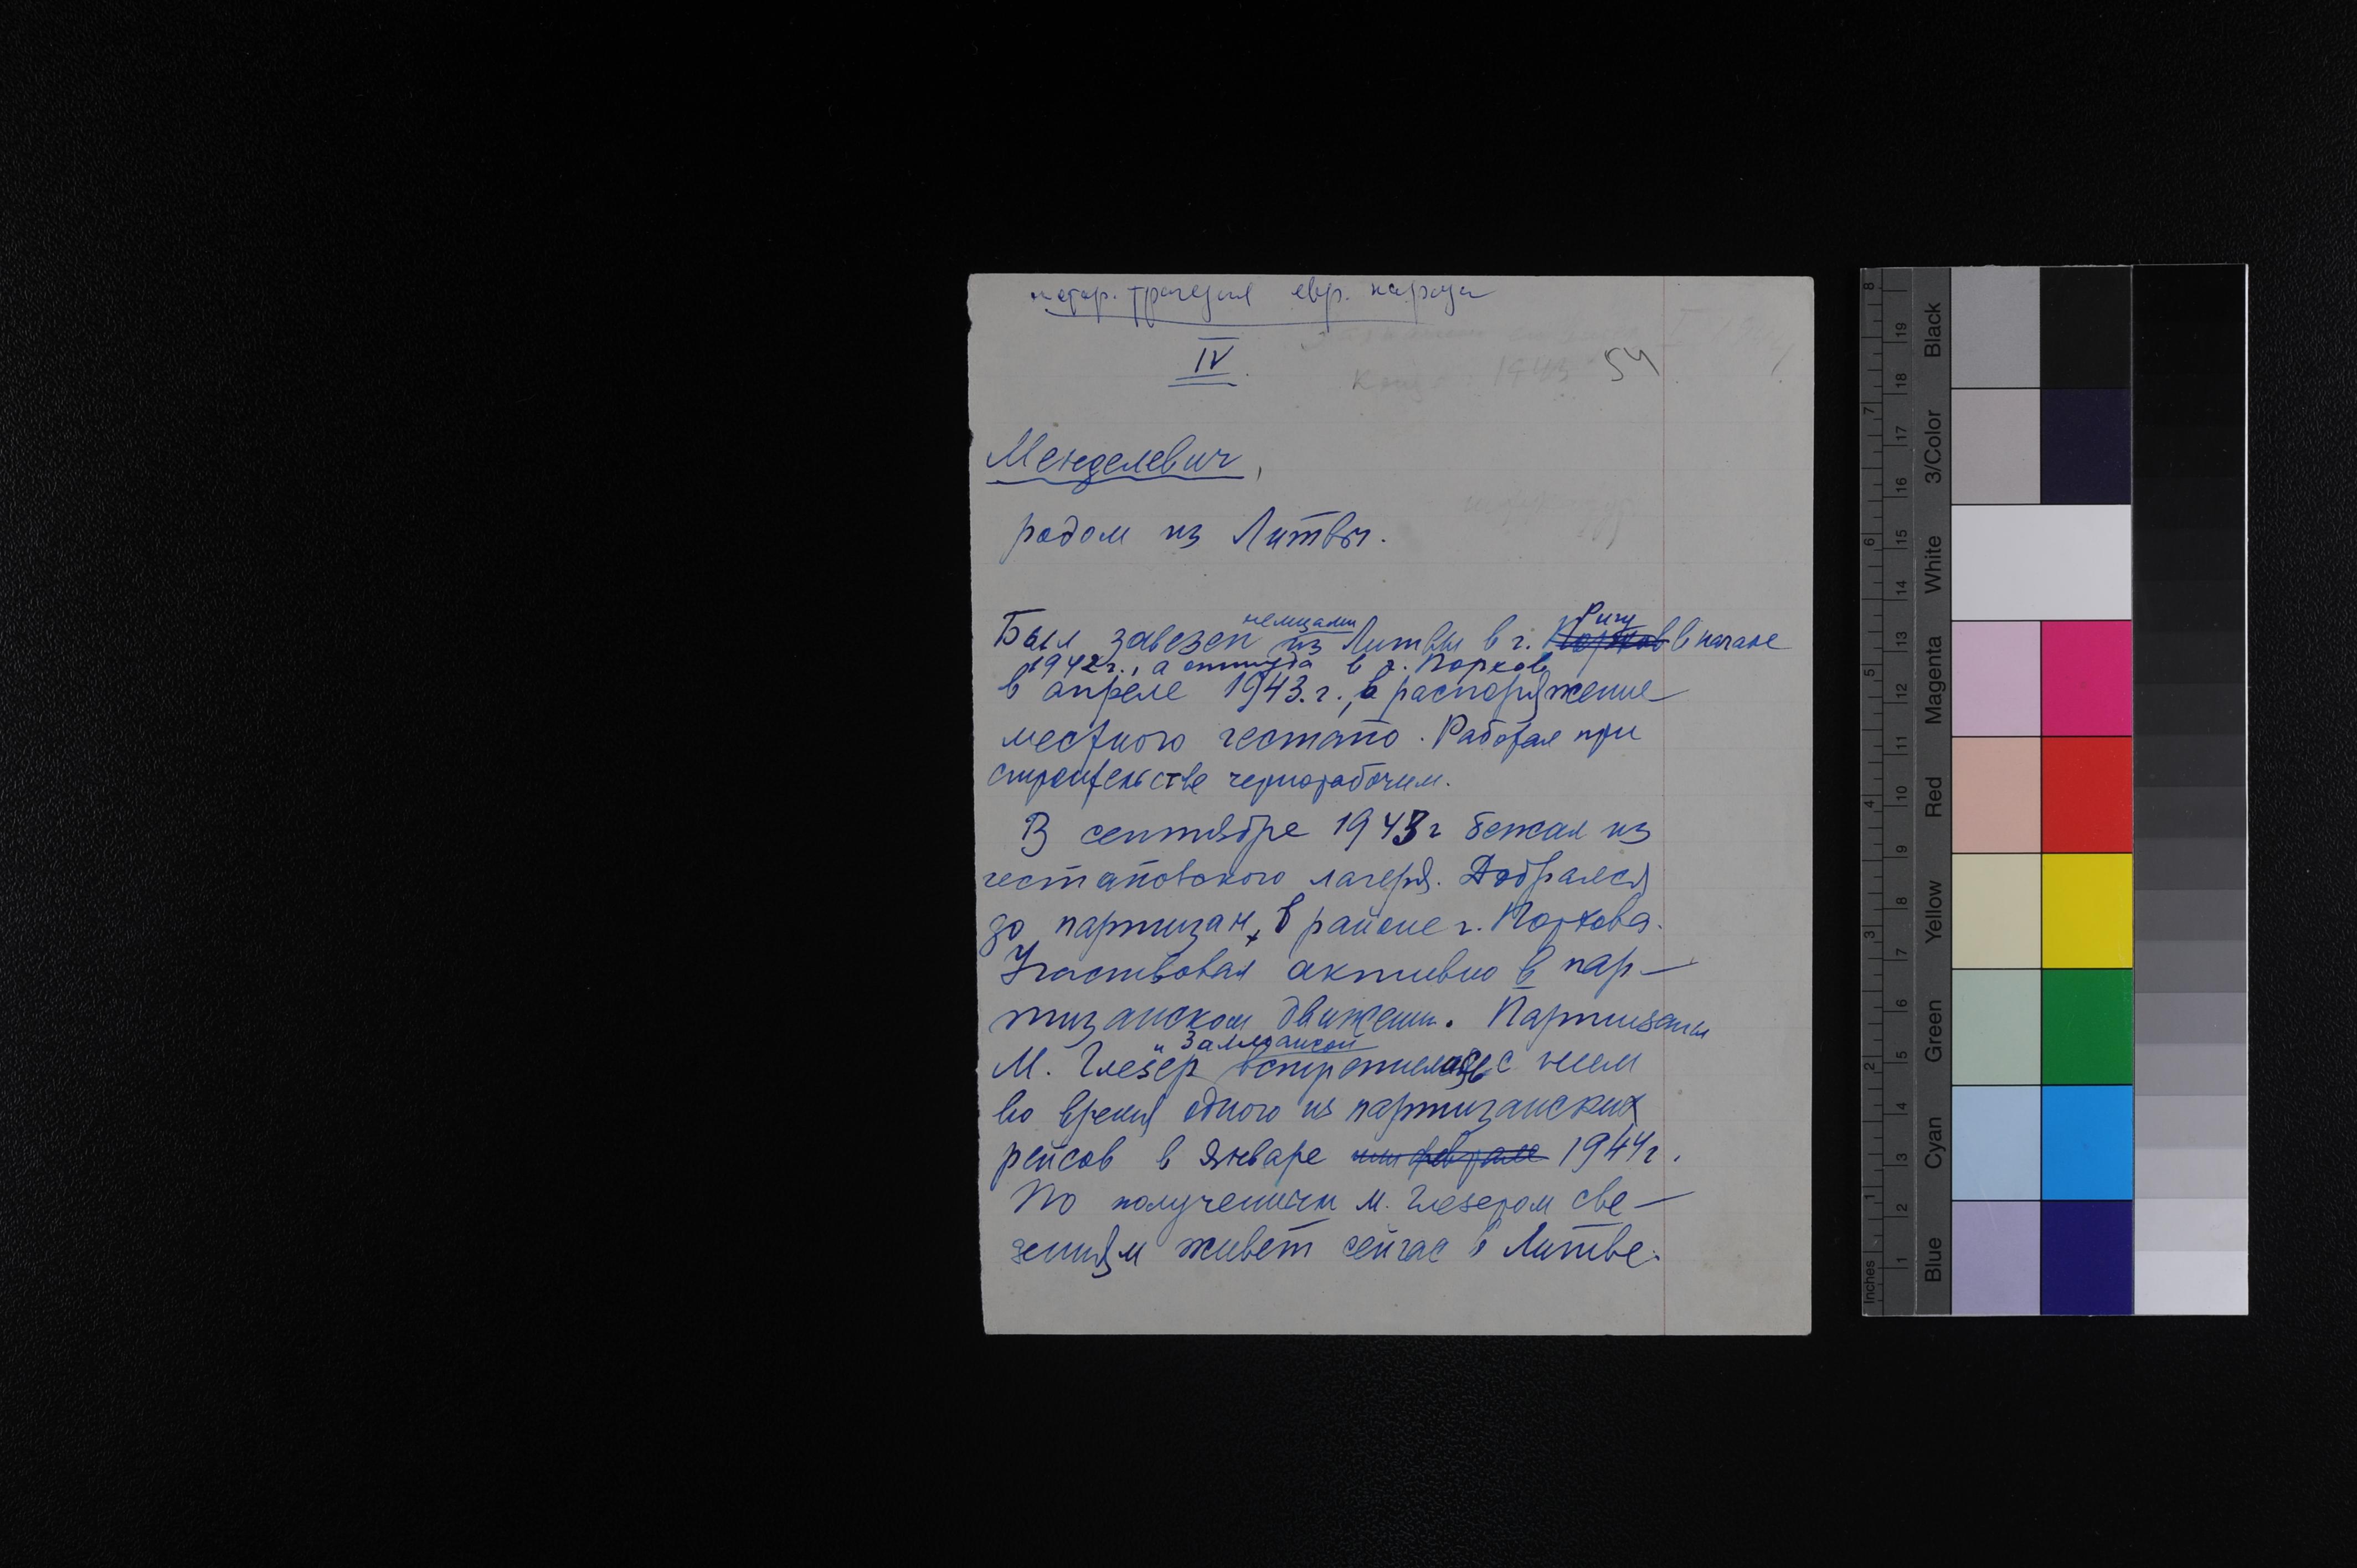 истор. трагедия евр. народа
IV.
54
Менделевич,
родом из Литвы.
немцами Ригу
Был завезен из Литвы в г. Порхов в начале
1942 г., а оттуда в г. Порхов
в апреле 1943. г., в распоряжение
местного гестапо. Работал при
строительстве чернорабочим.
В сентябре 1943 г бежал из
гестаповского лагеря. Добрался
до партизан, в районе г. Порхова.
Участвовал активно в пар-
тизанском движении. Партизаны
М. Глезер встретились с ним
во время одного из партизанских
рейсов в январе или феврале 1944 г.
По полученным М. Глезером све-
дениям живет сейчас в Литве.
Inches 1 2 3 4 5 6 7 8
1 2 3 4 5 6 7 8 9 10 11 12 13 14 15 16 17 18 19
Blue Cyan Green Yellow Red Magenta White 3/Color Black